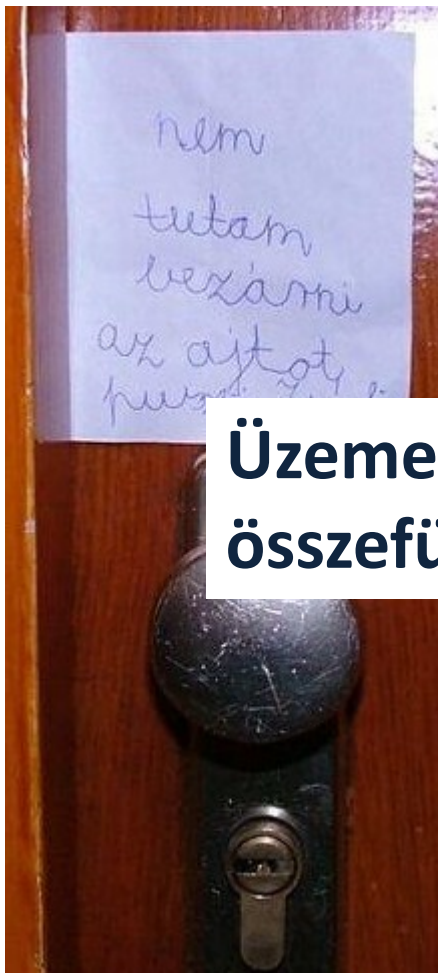 nem
tutam
bezárni
az ajtot
puszi
Üzeme
összefü